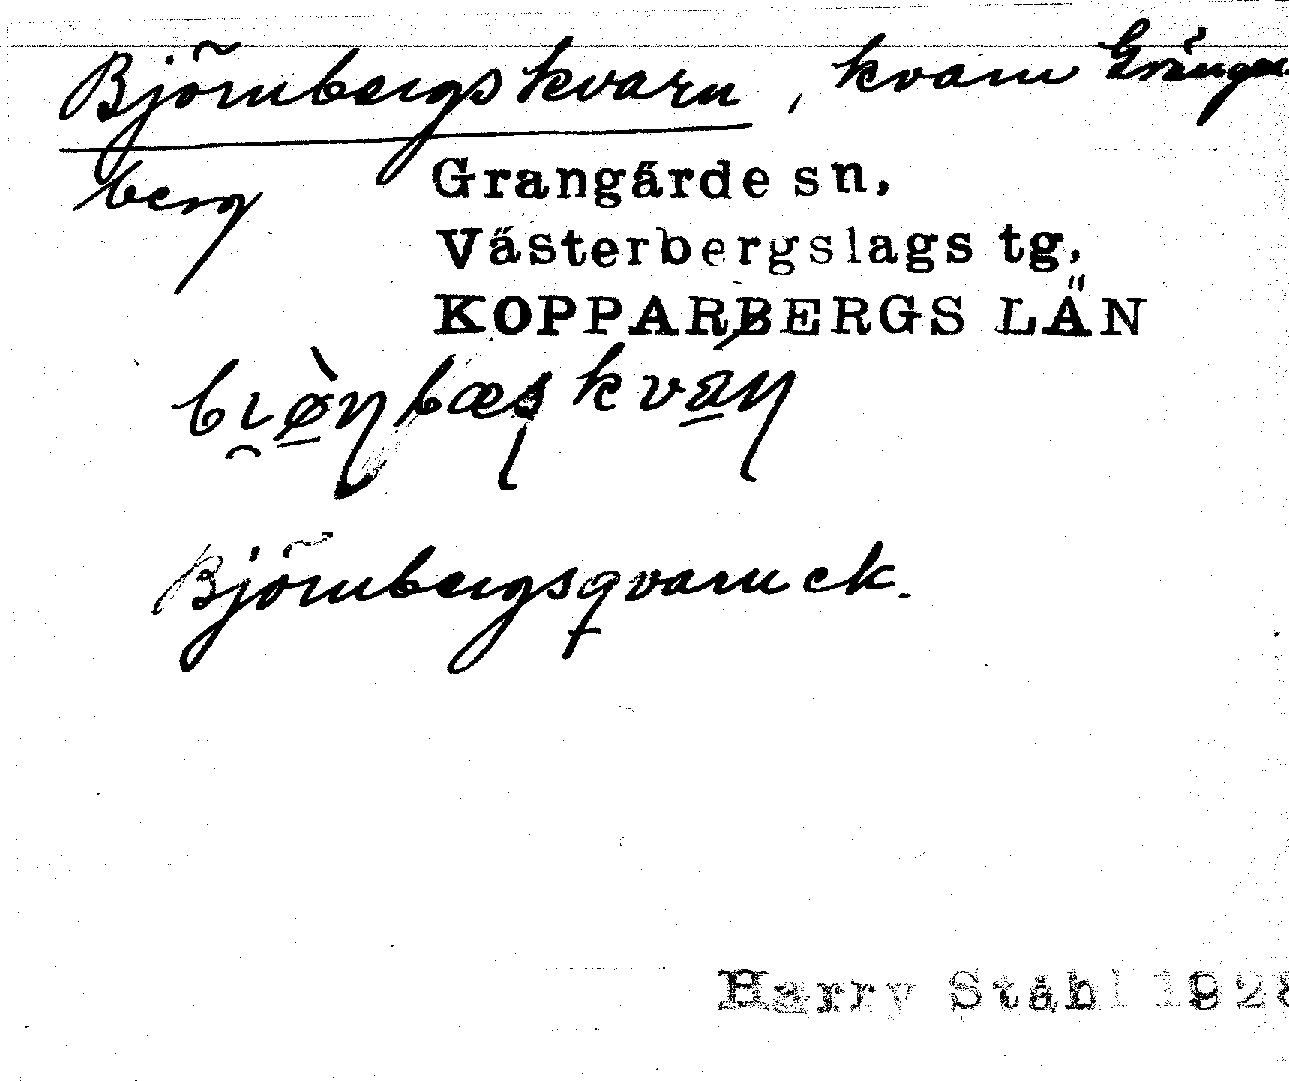 Björnbergskvarn, kvarn Grängesberg
Grangärde sn.
Västerbergslags tg.
KOPPARBERGS LÄN
Björnbergsqvarn ek.
Harry Ståhl 1928